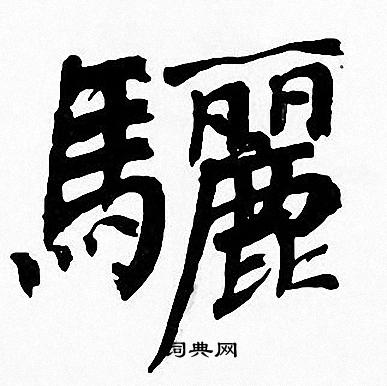 驪
词典网